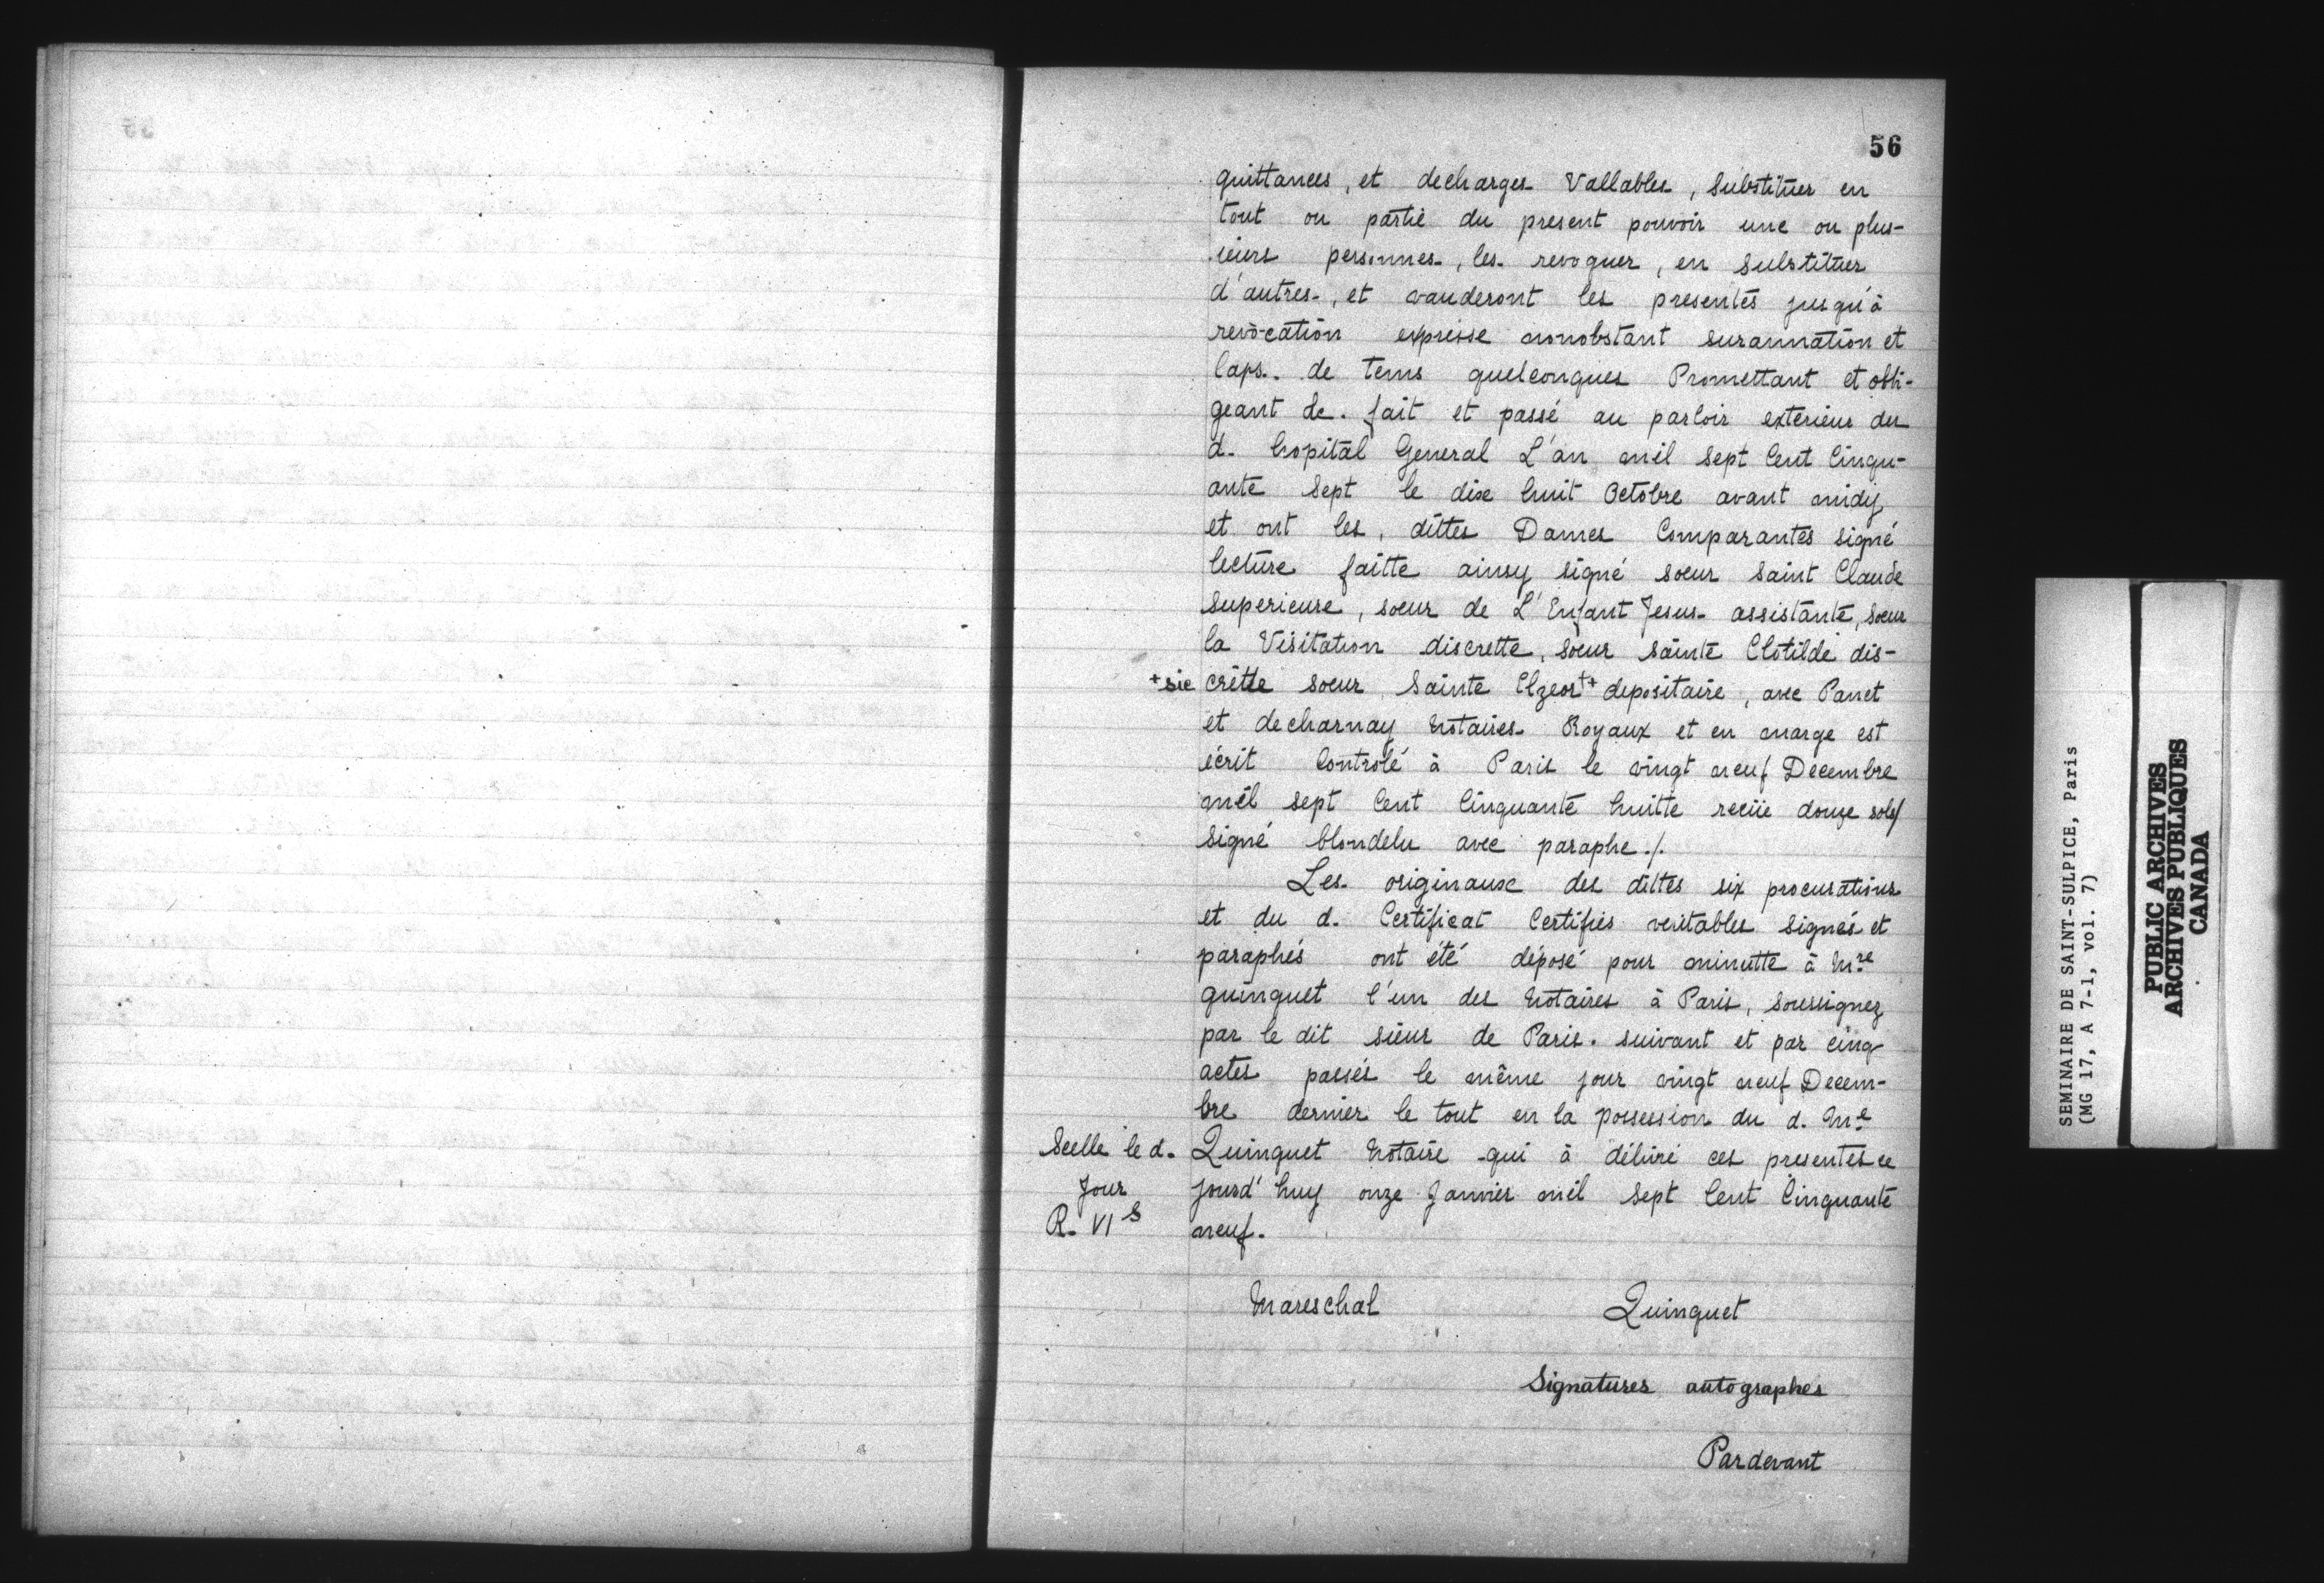 56
quittances, et decharges Vallables, Substituer en
tout ou partie du present pouvoir une ou plus-
ieurs personnes, les revoquer, en substituer
d'autres, et vauderont les presentes jusqu'à
revocation expresse nonobstant surannation et
laps. de tems quelconques Promettant et obli-
geant &c. fait et passé au parloir exterieur du
d. hopital General L'an mil sept Cent Cinqu-
ante sept le dix huit Octobre avant midy
et ont les, dittes Dames Comparantes signé
lecture faitte ainsy signé soeur Saint Claude
Superieure, soeur de L'Enfant Jesus assistante, soeur
la Visitation discrette, soeur sainte Clotilde dis-
+sic crette soeur Sainte Elzear+ depositaire, avec Panet
et decharnay Notaires Royaux et en marge est
écrit Controlé à Paris le vingt neuf Decembre
mil sept Cent Cinquante huitte reciie douze sols/
signé blondelu avec paraphe./.
Les originaux des dittes six procurations
et du d. Certificat Certifiés veritables signés et
paraphés ont été déposé pour minutte à Mre
quinquet l'un des Notaires à Paris, soussignez
par le dit sieur de Paris. suivant et par cinq
actes passés le même jour vingt neuf Decem-
bre dernier le tout en la possession du d. Me
Scelle le d. Quinquet Notaire qui à délivré ces presentes ce
Jour jourd'huy onze Janvier mil sept Cent Cinquante
R. VI S neuf.
Mareschal Quinquet
Signatures autographes
Pardevant
SEMINAIRE DE SAINT-SULPICE, Paris
(MG 17, A 7-1, vol. 7)
PUBLIC ARCHIVES
ARCHIVES PUBLIQUES
CANADA